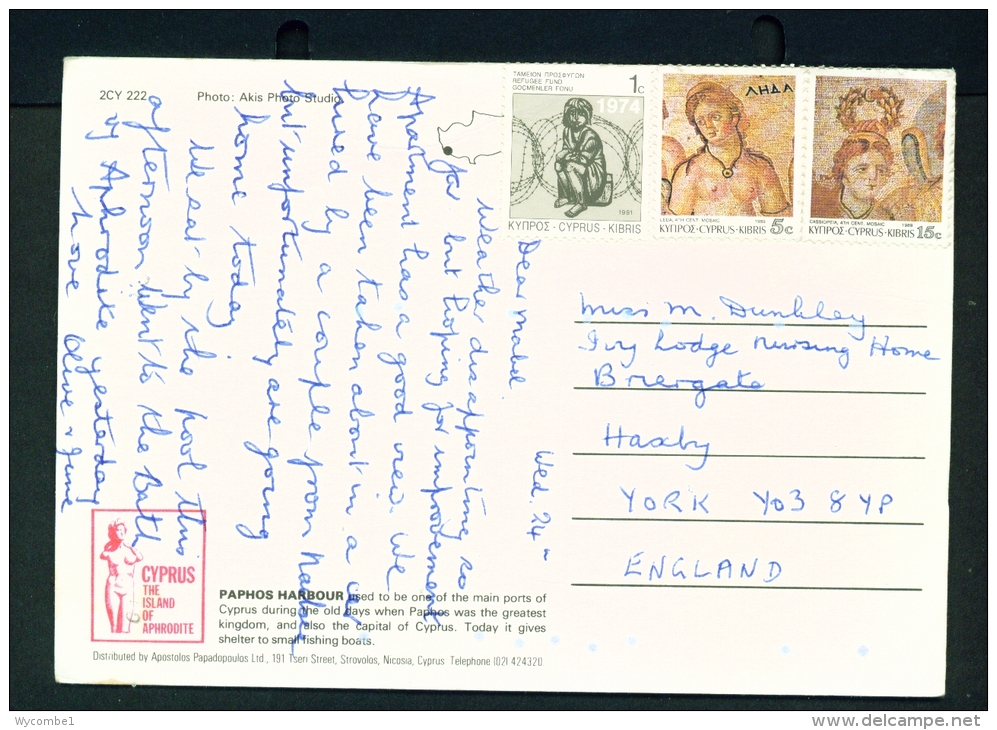 2CY 222
Photo: Akis Photo Studio
ΤΑΜΕΙΟΝ ΠΡΟΣΦΥΓΩΝ
REFUGEE FUND
GÖÇMENLER FONU
1c
1974
1991
ΚΥΠΡΟΣ - CYPRUS - KIBRIS
ΛΗΔΑ
LEDA, 4TH CENT. MOSAIC
1989
ΚΥΠΡΟΣ-CYPRUS-KIBRIS 5c
CASSIOPEIA, 4TH CENT. MOSAIC
1989
ΚΥΠΡΟΣ-CYPRUS-KIBRIS 15c
Wed. 24th
Dear Mabel.
Weather disappointing so
far but hoping for improvement
Apartment has a good view. We
have been taken about in a car
hired by a couple from
but unfortunately are going
home today
We sat by the pool this
afternoon. Went to the Bath
of Aphrodite yesterday
Love Olive & June
Miss M. Dunkley
Ivy Lodge Nursing Home
Briergate
Haxby
YORK YO3 8YP
ENGLAND
CYPRUS
THE
ISLAND
OF
APHRODITE
PAPHOS HARBOUR used to be one of the main ports of
Cyprus during the old days when Paphos was the greatest
kingdom, and also the capital of Cyprus. Today it gives
shelter to small fishing boats.
Distributed by Apostolos Papadopoulos Ltd., 191 Tseri Street, Strovolos, Nicosia, Cyprus Telephone (02) 424320
Wycombe1
www.delcampe.net